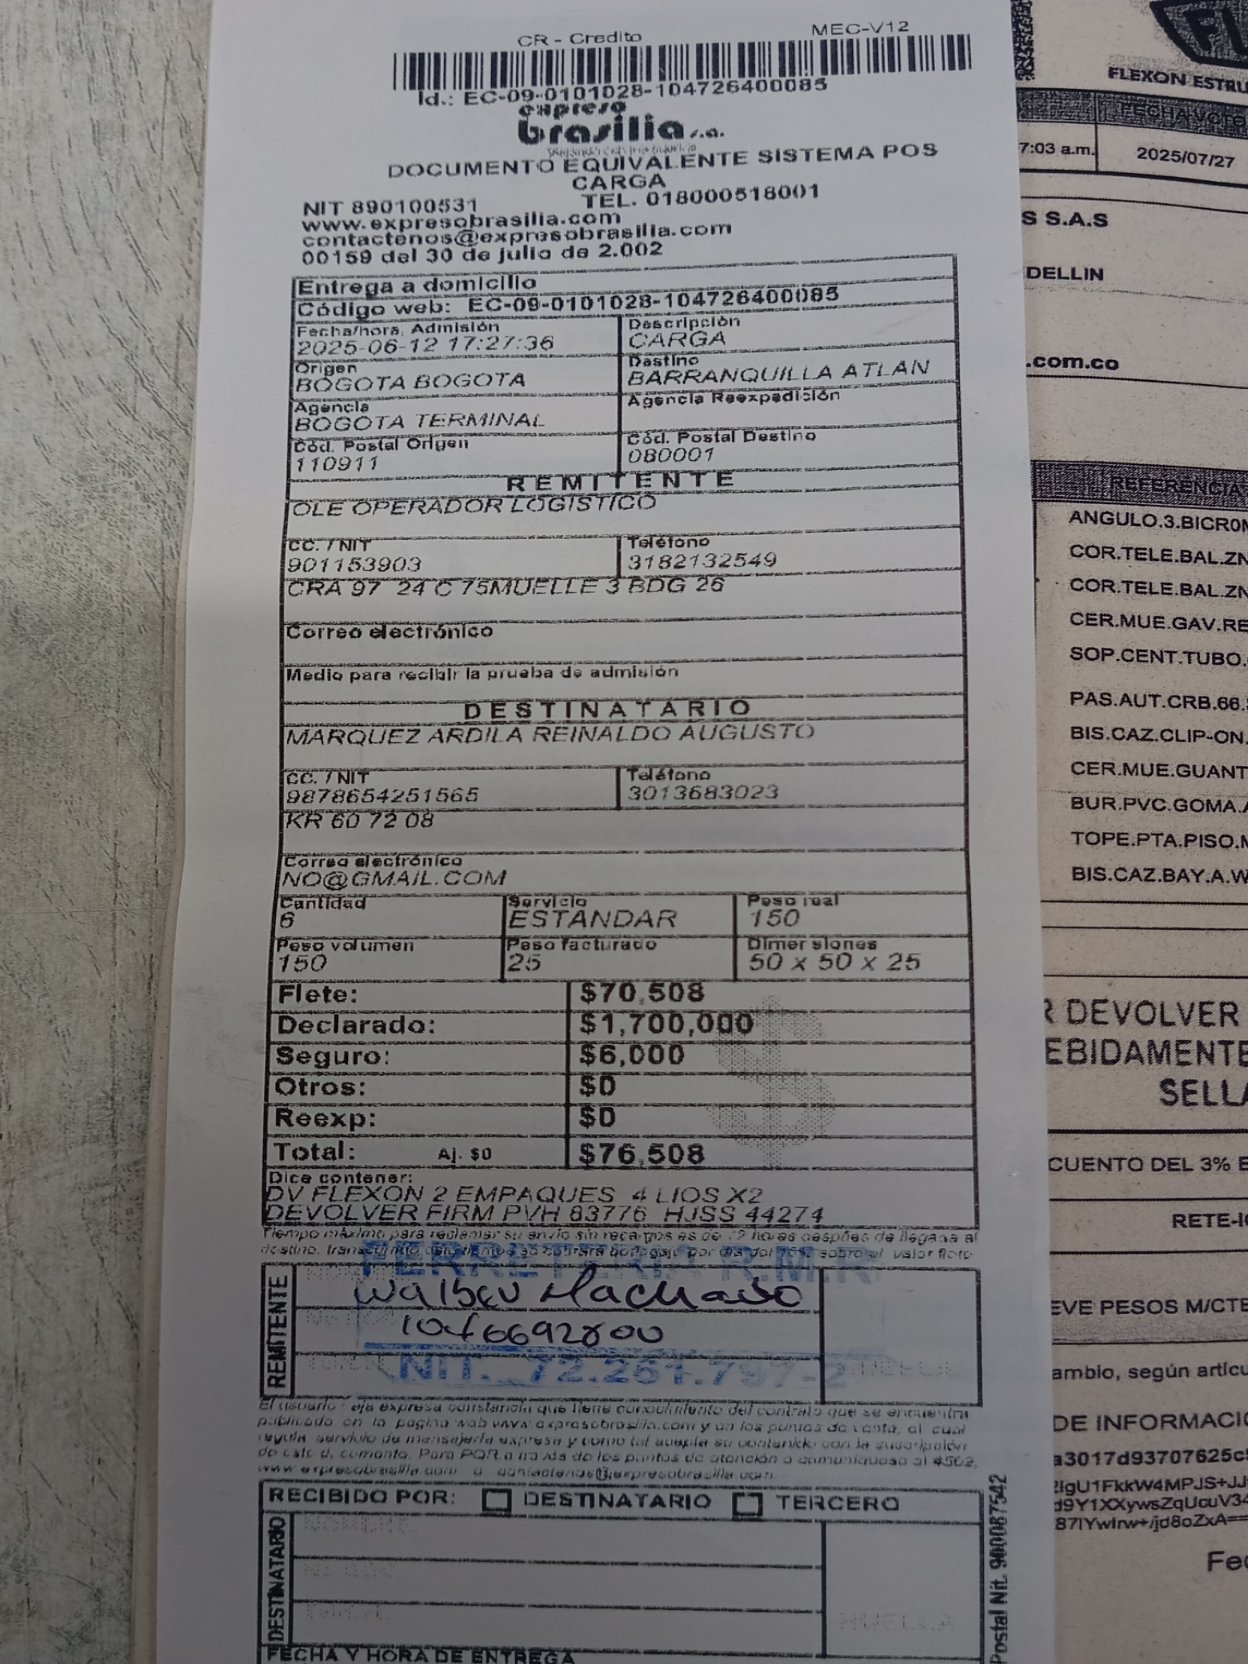 CR - Credito MEC-V12
Id.: EC-09-0101028-104726400085
expreso
brasilia s.a.
DOCUMENTO EQUIVALENTE SISTEMA POS
CARGA
NIT 890100531 TEL. 018000518001
www.expresobrasilia.com
contactenos@expresobrasilia.com
00159 del 30 de julio de 2.002
Entrega a domicilio
Código web: EC-09-0101028-104726400085
Fecha/hora, Admisión Descripción
2025-06-12 17:27:36 CARGA
Origen Destino
BOGOTA BOGOTA BARRANQUILLA ATLAN
Agencia Agencia Reexpedición
BOGOTA TERMINAL
Cód. Postal Origen Cód. Postal Destino
110911 080001
REMITENTE
OLE OPERADOR LOGISTICO
CC. / NIT Teléfono
901153903 3182132549
CRA 97 24 C 75MUELLE 3 BDG 26
Correo electrónico
Medio para recibir la prueba de admisión
DESTINATARIO
MARQUEZ ARDILA REINALDO AUGUSTO
CC. / NIT Teléfono
9878654251565 3013683023
KR 60 72 08
Correo electrónico
NO@GMAIL.COM
Cantidad Servicio Peso real
6 ESTANDAR 150
Peso volumen Peso facturado Dimensiones
150 25 50 x 50 x 25
Flete: $70,508
Declarado: $1,700,000
Seguro: $6,000
Otros: $0
Reexp: $0
Total: Aj. $0 $76,508
Dice contener:
DV FLEXON 2 EMPAQUES 4 LIOS X2
DEVOLVER FIRM PVH 83776 HJSS 44274
Tiempo máximo para reclamar su envío sin recargos es de 72 horas después de llegada al
destino, valor flete
FERRETERIA R.M.R
REMITENTE
Walber Machado
NIT. 72.261.797-2
El usuario deja expresa constancia que tiene conocimiento del contrato que se encuentra
publicado en la página web www.expresobrasilia.com y en los puntos de venta, el cual
regula servicio de mensajería expresa y como tal acepta su contenido con la suscripción
de este documento. Para PQR a través de los puntos de atención o comuníquese al 4502,
www.expresobrasilia.com o contactenos@expresobrasilia.com
RECIBIDO POR: DESTINATARIO TERCERO
DESTINATARIO
FECHA Y HORA DE ENTREGA
Postal Nit. 900087542
FLEXON ESTRU
FECHA VCTO
7:03 a.m. 2025/07/27
S S.A.S
DELLIN
.com.co
REFERENCIA
ANGULO.3.BICROM
COR.TELE.BAL.ZN
COR.TELE.BAL.ZN
CER.MUE.GAV.RE
SOP.CENT.TUBO.
PAS.AUT.CRB.66.
BIS.CAZ.CLIP-ON.
CER.MUE.GUANT
BUR.PVC.GOMA.A
TOPE.PTA.PISO.M
BIS.CAZ.BAY.A.W
R DEVOLVER
EBIDAMENTE
SELLA
CUENTO DEL 3% E
RETE-IC
EVE PESOS M/CTE
ambio, según artícu
DE INFORMACIO
a3017d93707625c
Fec